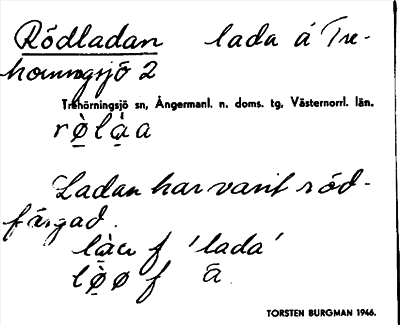 Rödladan lada å Tre-
hörningsjö 2
Trehörningsjö sn, Ångermanl. n. doms. tg, Västernorrl. län.
rø̣̀lạ̀a
Ladan har varit röd-
färgad.
lạ̀a f 'lada'
lø̣̀ø f ā
TORSTEN BURGMAN 1946.